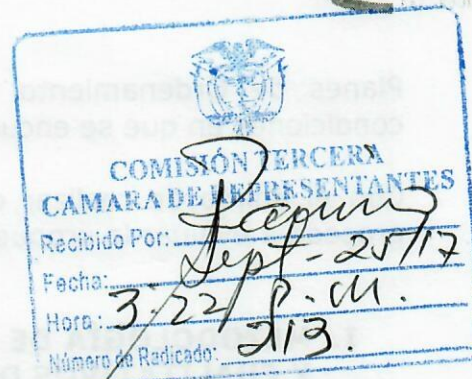 COMISIÓN TERCERA
CAMARA DE REPRESENTANTES
Recibido Por:
Fecha: Sept-25/17
Hora: 3:22 P.M.
Número de Radicado: 213